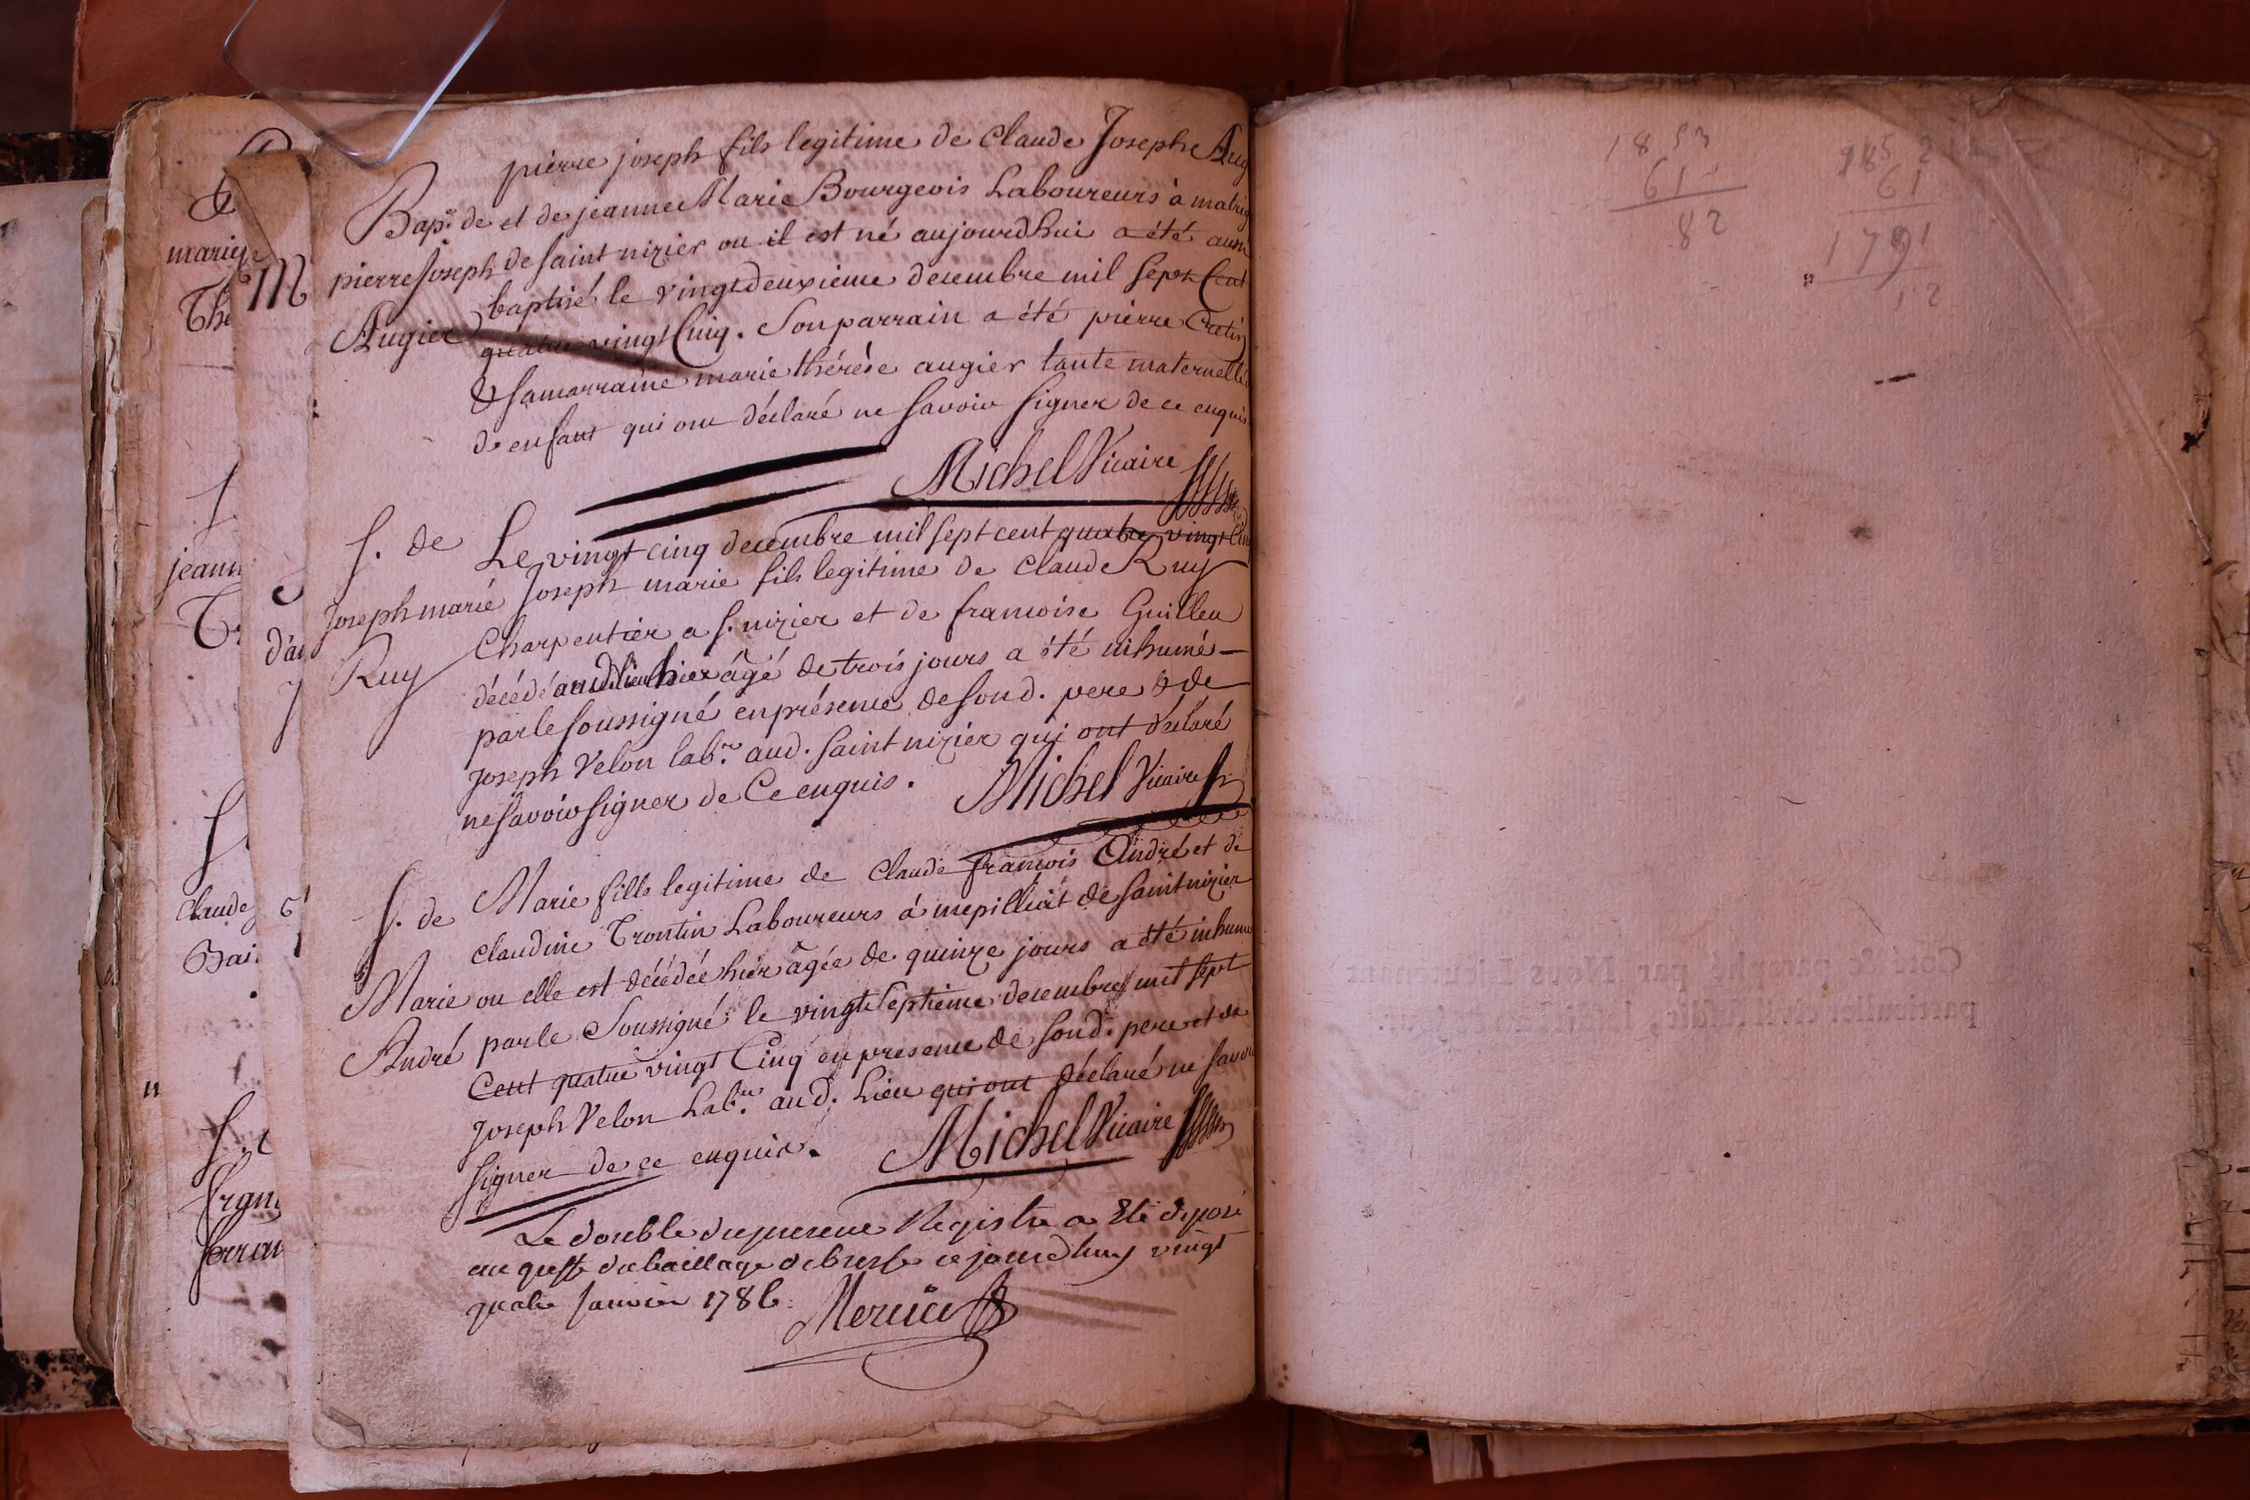 pierre joseph fils legitime de Claude Joseph Aug
Bap. de et de jeanne Marie Bourgeois Laboureurs à matrig
pierre Joseph de saint nizier ou il est né aujourdhui a été aussi
Augier baptisé le vingt deuxieme decembre mil sept Cent
quatre vingt Cinq. Son parrain a été pierre
& sa marraine marie thérèse augier tante maternelle
de enfant qui ont déclaré ne savoir signer de ce enquis
Michel Vicaire
S. de Le vingt cinq decembre mil sept cent quatre vingt Cinq
Joseph marié Joseph marie fils legitime de Claude Ruy
Ruy Charpentier a S. nizier et de francoise Guilleu
décédé aud. lieu hier âgé de trois jours a été inhumé
par le soussigné en présence de sond. pere & de
Joseph Velon lab.r aud. saint nizier qui ont déclaré
ne savoir signer de Ce enquis. Michel Vicaire
S. de Marie fille legitime de Claude francois André et de
claudine Trontin Laboureurs à mepilliat de saint nizier
Marie ou elle est décédée hier âgée de quinze jours a été inhumé
André par le Soussigné le vingt septieme decembre mil sept
Cent quatre vingt Cinq en presence de sond. pere et de
Joseph Velon Lab.r aud. Lieu qui ont déclaré ne savoir
signer de ce enquis. Michel Vicaire
Le double du present Registre a Eté déposé
au greffe du bailliage de bresse ce jourdhuy vingt
quatre Janvier 1786. Mercier
mariye
jeann
claude
1853
61
82
1852
61
1791
12